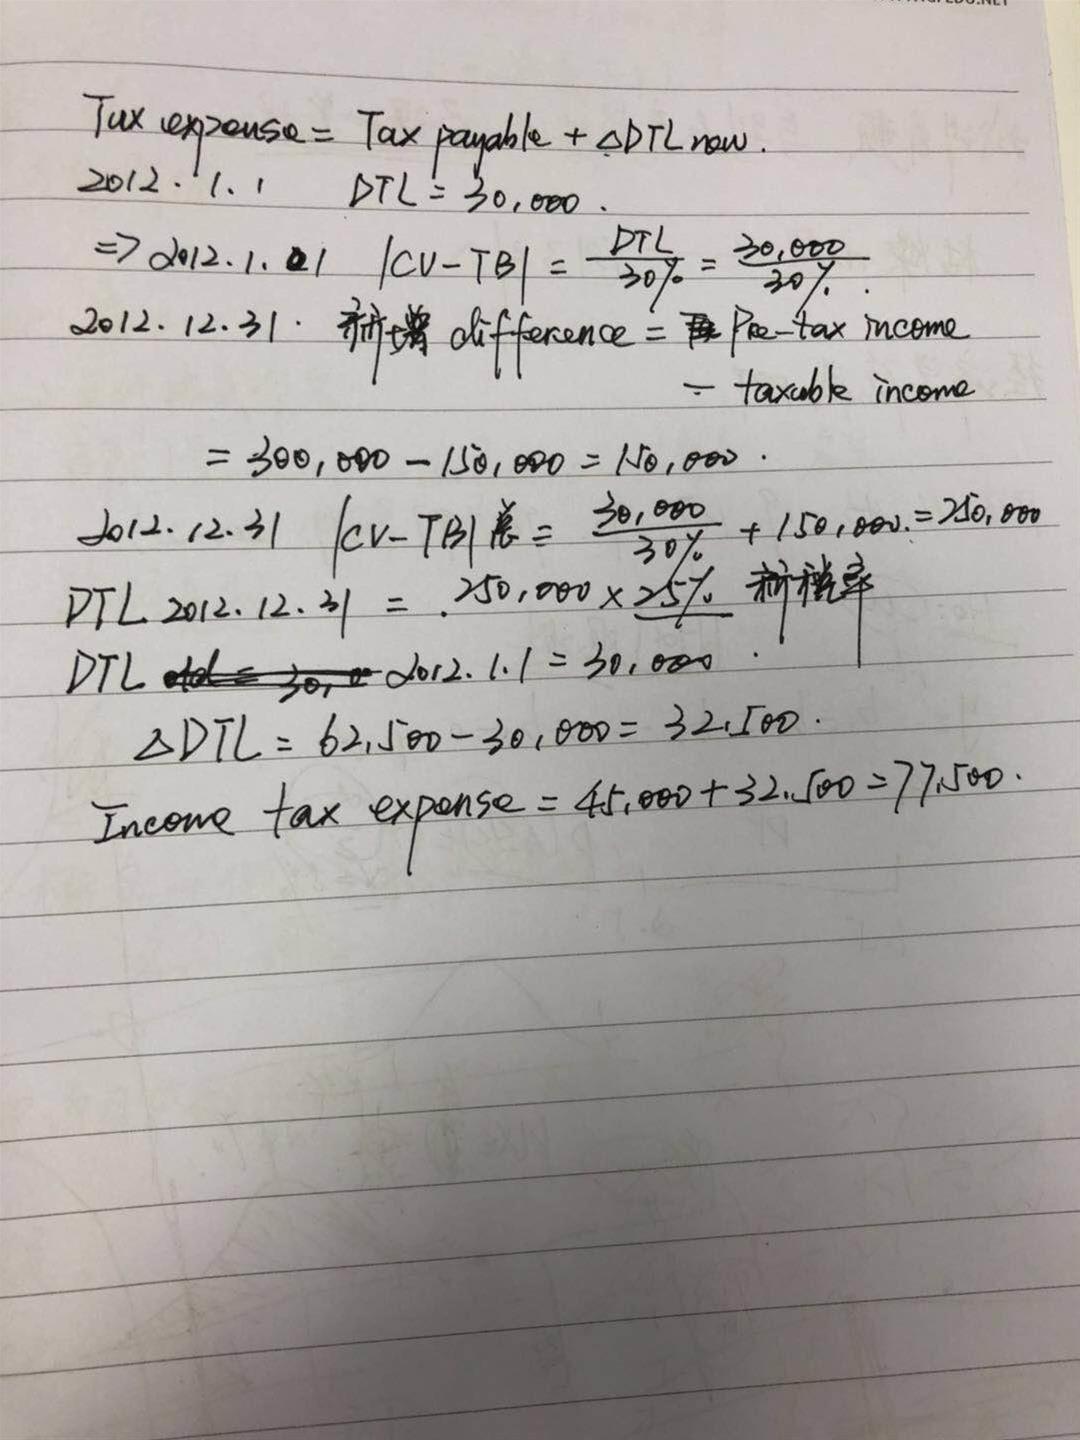 Tax expense = Tax payable + △DTL new.
2012.1.1 DTL = 30,000.
=> 2012.1.01 |CV-TB| = DTL/30% = 30,000/30%.
2012.12.31. 新增 difference = Pre-tax income
- taxable income
= 300,000 - 150,000 = 150,000.
2012.12.31 |CV-TB| 总 = 30,000/30% + 150,000. = 250,000
DTL 2012.12.31 = .250,000 × 25% 新税率
DTL 2012.1.1 = 30,000.
△DTL = 62,500 - 30,000 = 32,500.
Income tax expense = 45,000 + 32,500 = 77,500.